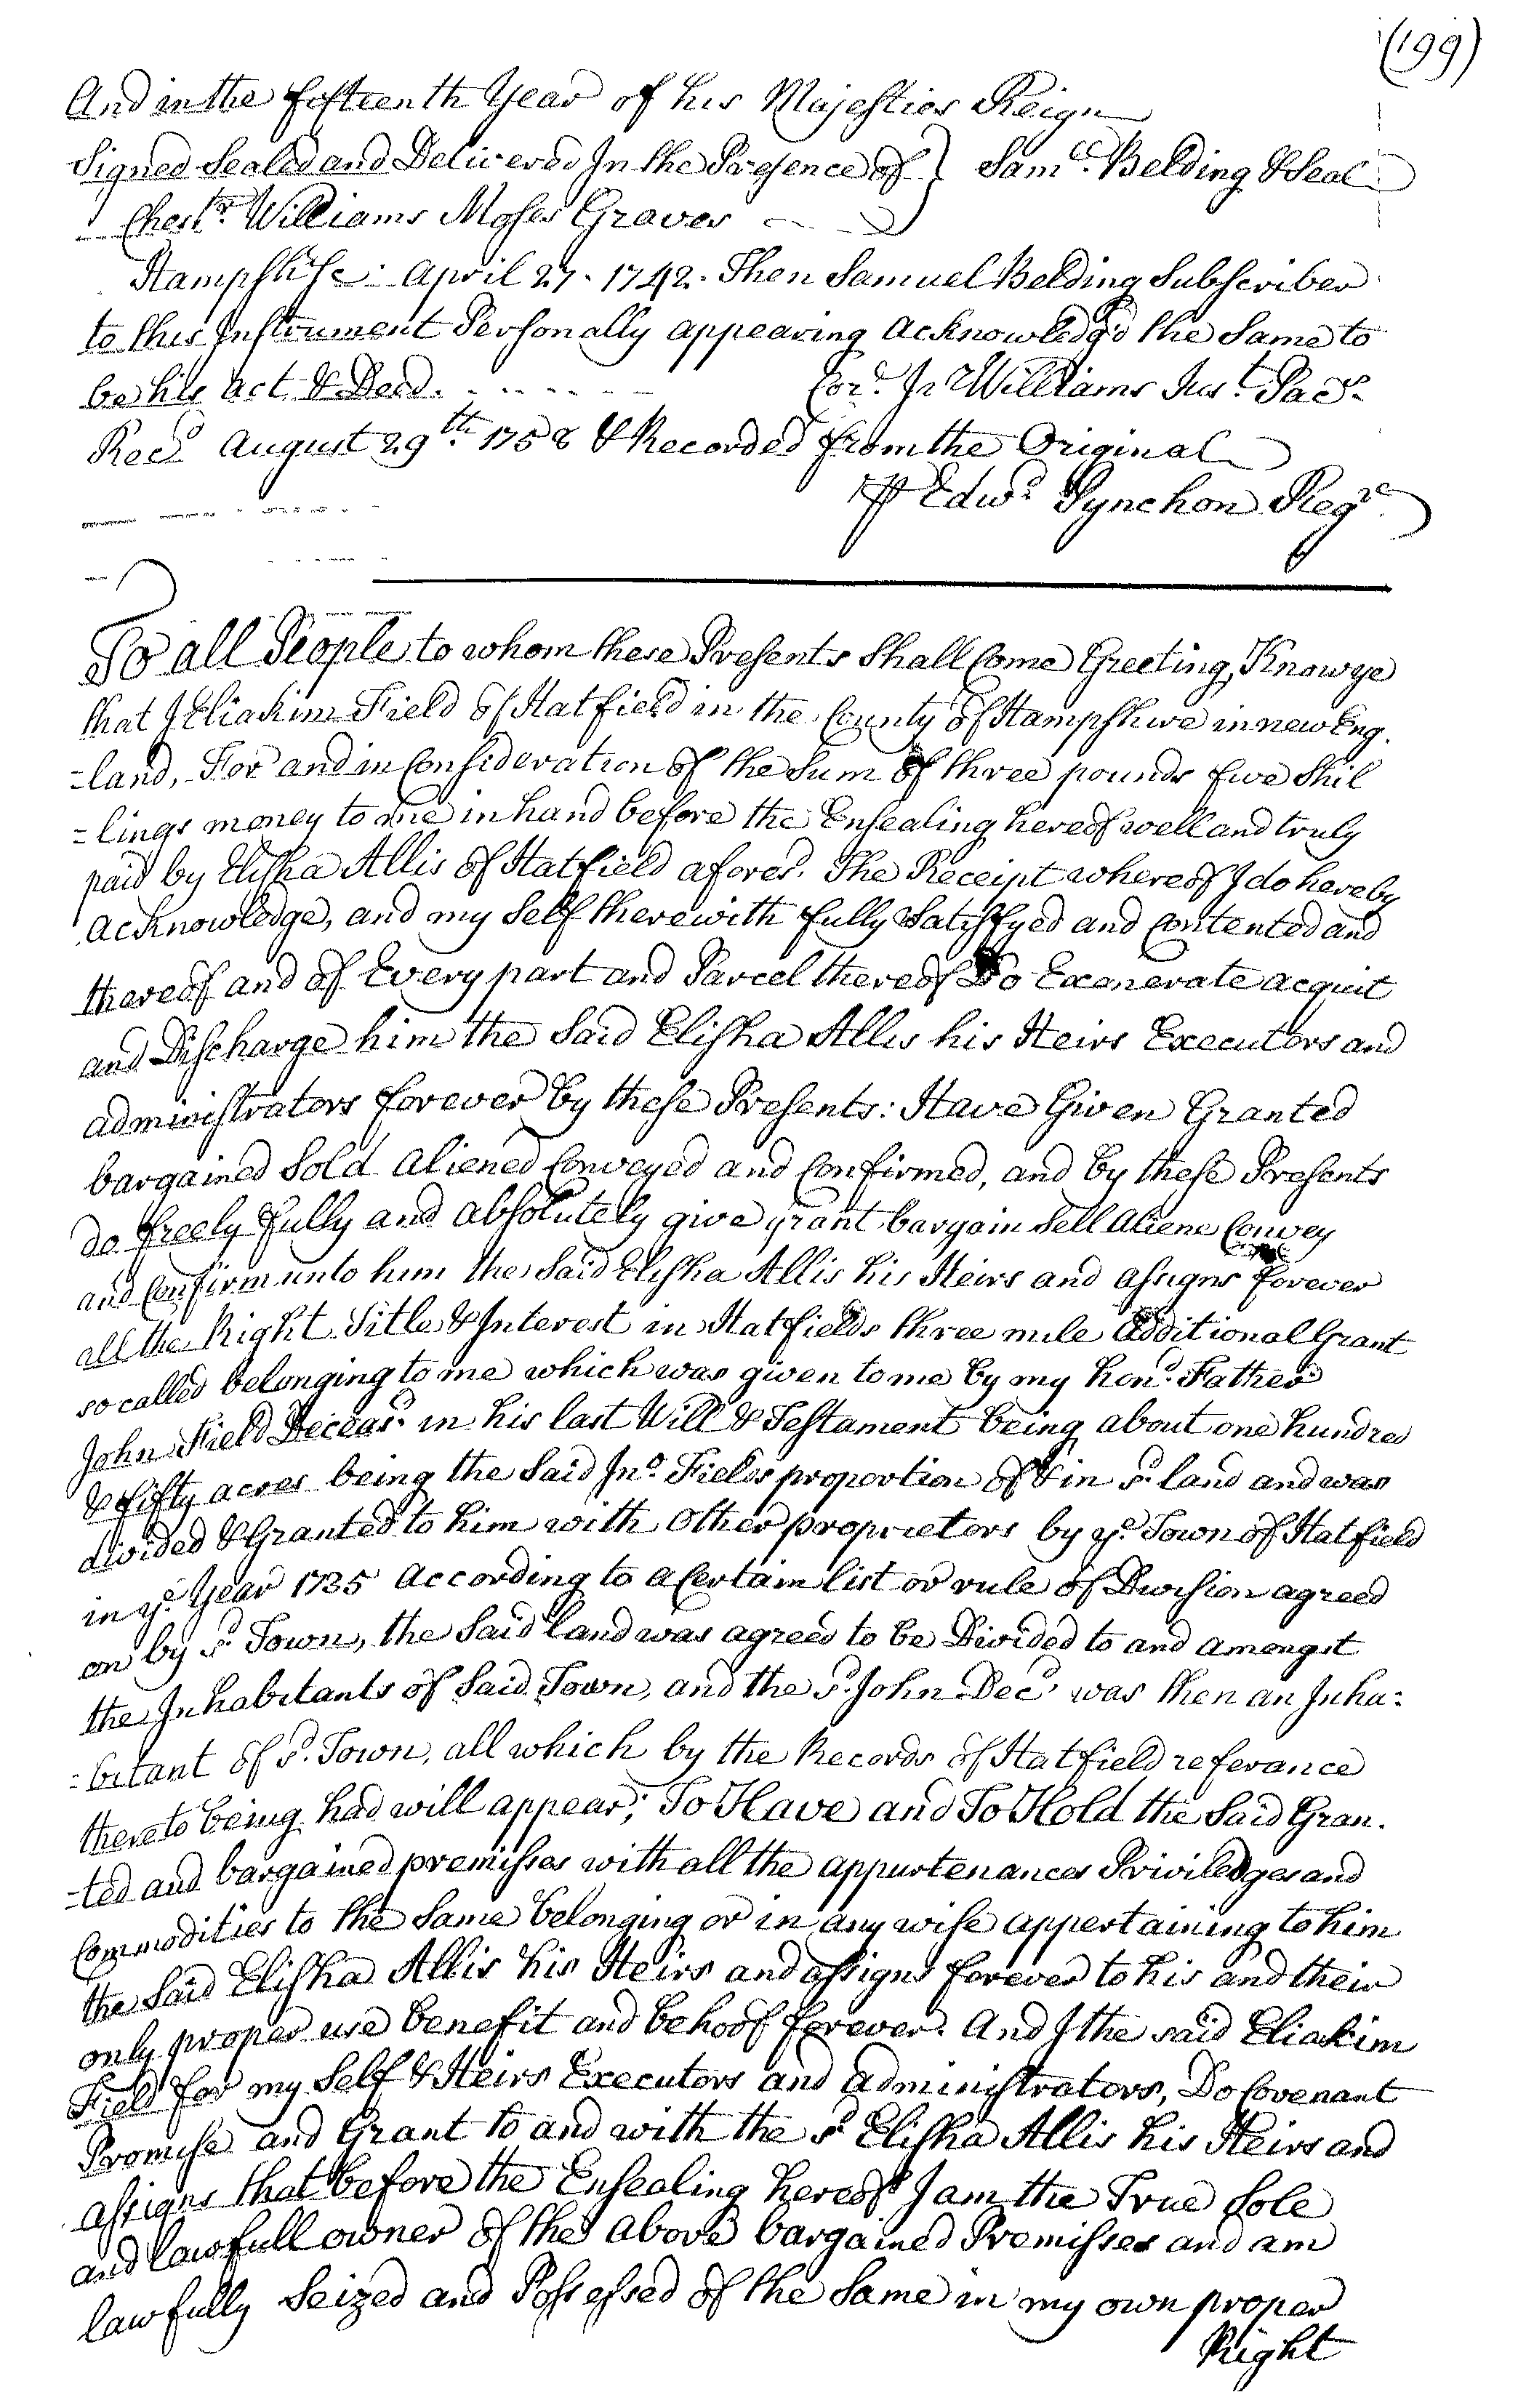 (199)
And in the fifteenth Year of his Majesties Reign
Signed Sealed and Delivered In the Presence of } Sam.ll Belding & Seal
Chest.r Williams Moses Graves
Hampshire: April 27. 1742. Then Samuel Belding Subscriber
to this Instrument Personally appearing Acknowledg'd the Same to
be his Act & Deed. Cor.m Is Williams Just. Pac.s
Rec.d August 29.th 1758 & Recorded from the Original
⅌ Edw.d Pynchon Reg.r
To all People to whom these Presents Shall Come Greeting, Know ye
that I Eliakim Field of Hatfield in the County of Hampshire in new Eng.
=land, For and in Consideration of the Sum of three pounds five Shil
=lings money to me in hand before the Ensealing hereof well and truly
paid by Elisha Allis of Hatfield afores.d The Receipt whereof I do hereby
acknowledge, and my Self therewith fully Satisfyed and Contented and
thereof and of Every part and Parcel thereof Do Exonerate acquit
and Discharge him the Said Elisha Allis his Heirs Executors and
administrators forever by these Presents: Have Given Granted
bargained Sold Aliened Conveyed and Confirmed, and by these Presents
do freely fully and absolutely give grant bargain Sell Aliene Convey
and Confirm unto him the Said Elisha Allis his Heirs and assigns forever
all the Right Title & Interest in Hatfields three mile Additional Grant
so called belonging to me which was given to me by my hon.d Father
John Field Deceas.d in his last Will & Testament being about one hundred
& fifty acres being the Said Jn.o Fields proportion of & in s.d land and was
divided & Granted to him with Other proprietors by y.e Town of Hatfield
in y.e Year 1735 According to a Certain list or rule of Division agreed
on by s.d Town, the Said Land was agreed to be Divided to and amongst
the Inhabitants of Said Town, and the s.d John Dec.d was then an Inha:
=bitant of s.d Town, all which by the Records of Hatfield referance
thereto being had will appear; To Have and To Hold the Said Gran.
-ted and bargained premisses with all the appurtenances Priviledges and
Commodities to the Same belonging or in any wise appertaining to him
the Said Elisha Allis his Heirs and assigns forever to his and their
only proper use benefit and behoof forever. And I the said Eliakim
Field for my Self & Heirs Executors and administrators, Do Covenant
Promise and Grant to and with the s.d Elisha Allis his Heirs and
assigns that before the Ensealing hereof I am the True Sole
and lawfull owner of the above bargained Premisses and am
lawfully Seized and Possessed of the Same in my own proper
Right